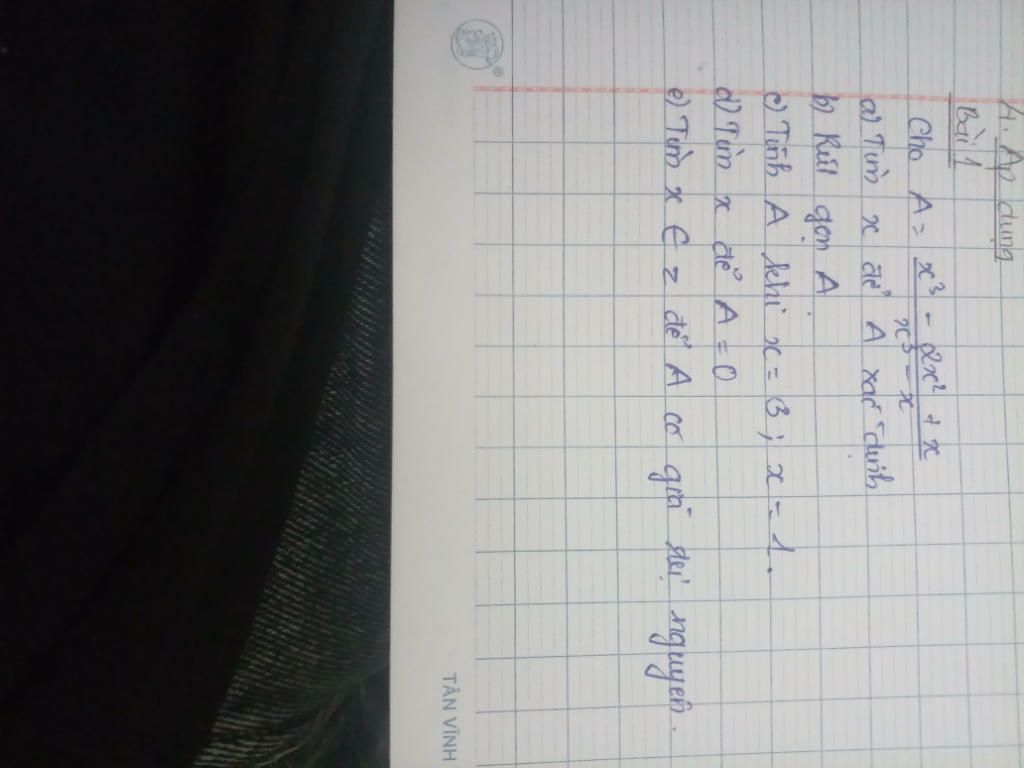 4. Áp dụng
Bài 1
Cho A = x³ - 2x² + x
x³ - x
a) Tìm x để A xác định
b) Rút gọn A
c) Tính A khi x = 3 ; x = 1.
d) Tìm x để A = 0
e) Tìm x ∈ Z để A có giá trị nguyên.
TÂN VĨNH
®